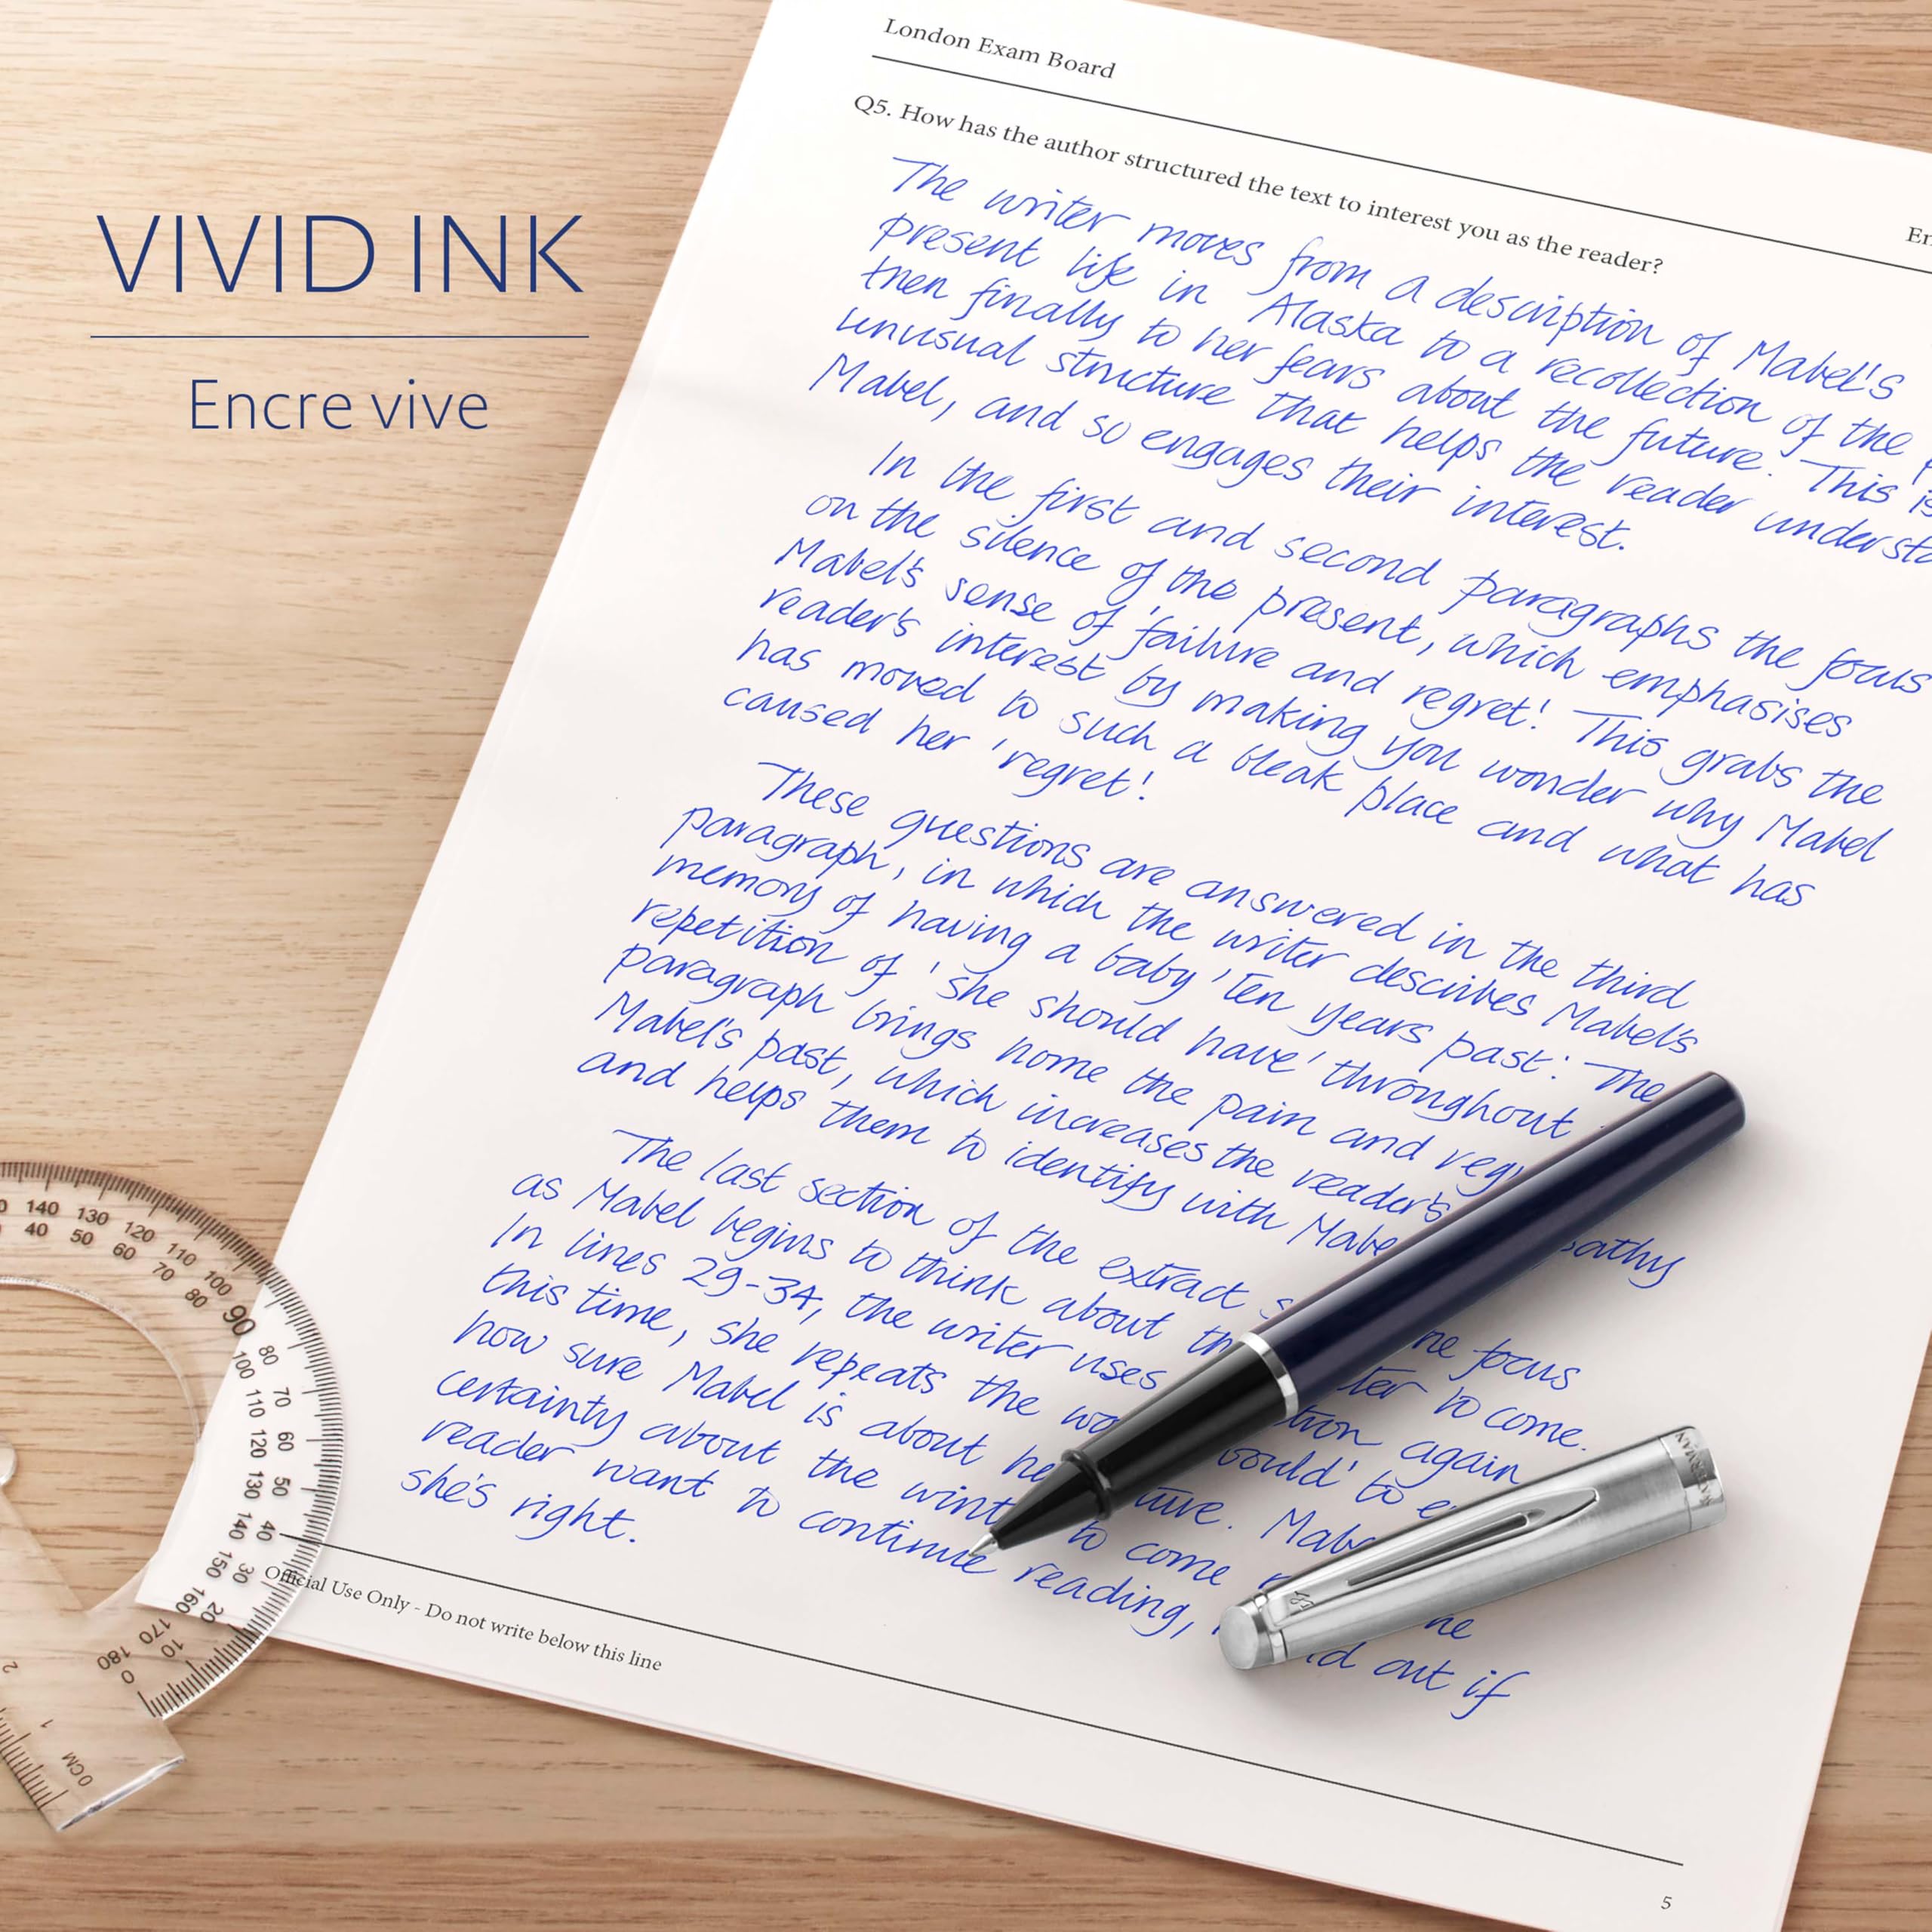 VIVID INK
Encre vive
London Exam Board
Q5. How has the author structured the text to interest you as the reader?
The writer moves from a description of Mabel's
present life in Alaska to a recollection of the
then finally to her fears about the future. This is
unusual structure that helps the reader understa
Mabel, and so engages their interest.
In the first and second paragraphs the focus
on the silence of the present, which emphasises
Mabel's sense of 'failure and regret'. This grabs the
reader's interest by making you wonder why Mabel
has moved to such a bleak place and what has
caused her 'regret'.
These questions are answered in the third
paragraph, in which the writer describes Mabel's
memory of having a baby 'ten years past'. The
repetition of 'she should have' throughout
paragraph brings home the pain and reg
Mabel's past, which increases the reader's pathy
and helps them to identify with Mabe
The last section of the extract s he focus
as Mabel begins to think about th ter to come.
In lines 29-34, the writer uses tion again
this time, she repeats the wo would' to e
how sure Mabel is about he ture. Mabe
certainty about the wint to come he
reader want to continue reading, d out if
she's right.
Official Use Only - Do not write below this line
5
WATERMAN
140 130 120 110 100 90 80 70 60 50 40 30 20 10 0
40 50 60 70 80 100 110 120 130 140 150 160 170 180
0CM 1 2